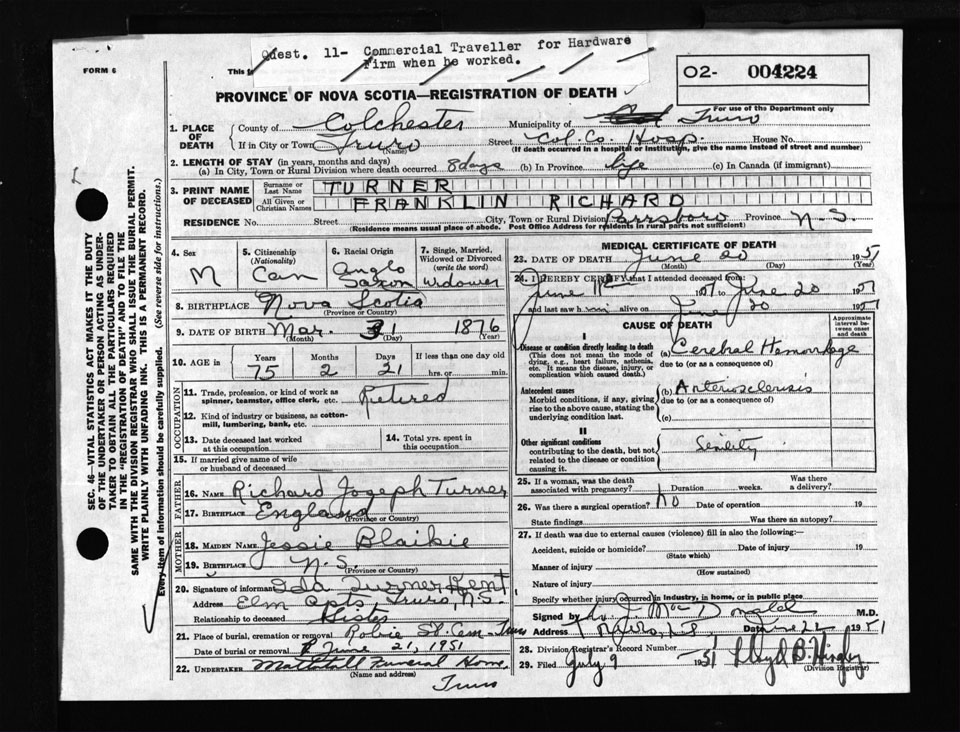 Quest. 11- Commercial Traveller for Hardware
Firm when he worked.
FORM 6
This f
02- 004224
For use of the Department only
PROVINCE OF NOVA SCOTIA—REGISTRATION OF DEATH
1. PLACE OF DEATH
County of Colchester Municipality of Truro
If in City or Town Truro (Name) Street Col. Co. Hosp. House No.
(If death occurred in a hospital or institution, give the name instead of street and number)
2. LENGTH OF STAY (in years, months and days)
(a) In City, Town or Rural Division where death occurred 8 days (b) In Province life (c) In Canada (if immigrant)
3. PRINT NAME OF DECEASED
Surname or Last Name TURNER
All Given or Christian Names FRANKLIN RICHARD
RESIDENCE No. Street City, Town or Rural Division Parrsboro Province N.S.
(Residence means usual place of abode. Post Office Address for residents in rural parts not sufficient)
4. Sex M
5. Citizenship (Nationality) Can
6. Racial Origin Anglo Saxon
7. Single, Married, Widowed or Divorced (write the word) Widower
8. BIRTHPLACE Nova Scotia
(Province or Country)
9. DATE OF BIRTH Mar. 31 1876
(Month) (Day) (Year)
10. AGE in Years 75 Months 2 Days 21 If less than one day old hrs. or min.
OCCUPATION
11. Trade, profession, or kind of work as spinner, teamster, office clerk, etc. Retired
12. Kind of industry or business, as cotton-mill, lumbering, bank, etc.
13. Date deceased last worked at this occupation
14. Total yrs. spent in this occupation
15. If married give name of wife or husband of deceased
FATHER
16. NAME Richard Joseph Turner
17. BIRTHPLACE England
(Province or Country)
MOTHER
18. MAIDEN NAME Jessie Blaikie
19. BIRTHPLACE N.S.
(Province or Country)
20. Signature of informant Ida Turner Kent
Address Elm Apts Truro, N.S.
Relationship to deceased Sister
21. Place of burial, cremation or removal Robie St. Cem. Truro
Date of burial or removal June 21, 1951
22. UNDERTAKER Mattatall Funeral Home,
(Name and address)
Truro
MEDICAL CERTIFICATE OF DEATH
23. DATE OF DEATH June 20 1951
(Month) (Day) (Year)
24. I HEREBY CERTIFY that I attended deceased from
June 1951 to June 20 1951
and last saw h alive on June 20 1951
CAUSE OF DEATH
Approximate interval between onset and death
I
Disease or condition directly leading to death
(This does not mean the mode of dying, e.g., heart failure, asthenia, etc. It means the disease, injury, or complication which caused death.)
(a) Cerebral Hemorrhage
due to (or as a consequence of)
Antecedent causes
Morbid conditions, if any, giving rise to the above cause, stating the underlying condition last.
(b) Arteriosclerosis
due to (or as a consequence of)
(c)
II
Other significant conditions
contributing to the death, but not related to the disease or condition causing it.
Senility
25. If a woman, was the death associated with pregnancy? Duration weeks. Was there a delivery?
26. Was there surgical operation? No Date of operation 19
State findings Was there an autopsy?
27. If death was due to external causes (violence) fill in also the following:—
Accident, suicide or homicide? Date of injury 19
(State which)
Manner of injury
(How sustained)
Nature of injury
Specify whether injury occurred in industry, in home, or in public place
Signed by MacDonald M.D.
Address Truro, N.S. Date June 22 1951
28. Division Registrar's Record Number
29. Filed July 9 1951 Lloyd B.
(Division Registrar)
SEC. 46—VITAL STATISTICS ACT MAKES IT THE DUTY
OF THE UNDERTAKER OR PERSON ACTING AS UNDER-
TAKER TO OBTAIN ALL THE PARTICULARS REQUIRED
IN THE "REGISTRATION OF DEATH" AND TO FILE THE
SAME WITH THE DIVISION REGISTRAR WHO SHALL ISSUE THE BURIAL PERMIT.
WRITE PLAINLY WITH UNFADING INK. THIS IS A PERMANENT RECORD.
Every item of information should be carefully supplied. (See reverse side for instructions.)